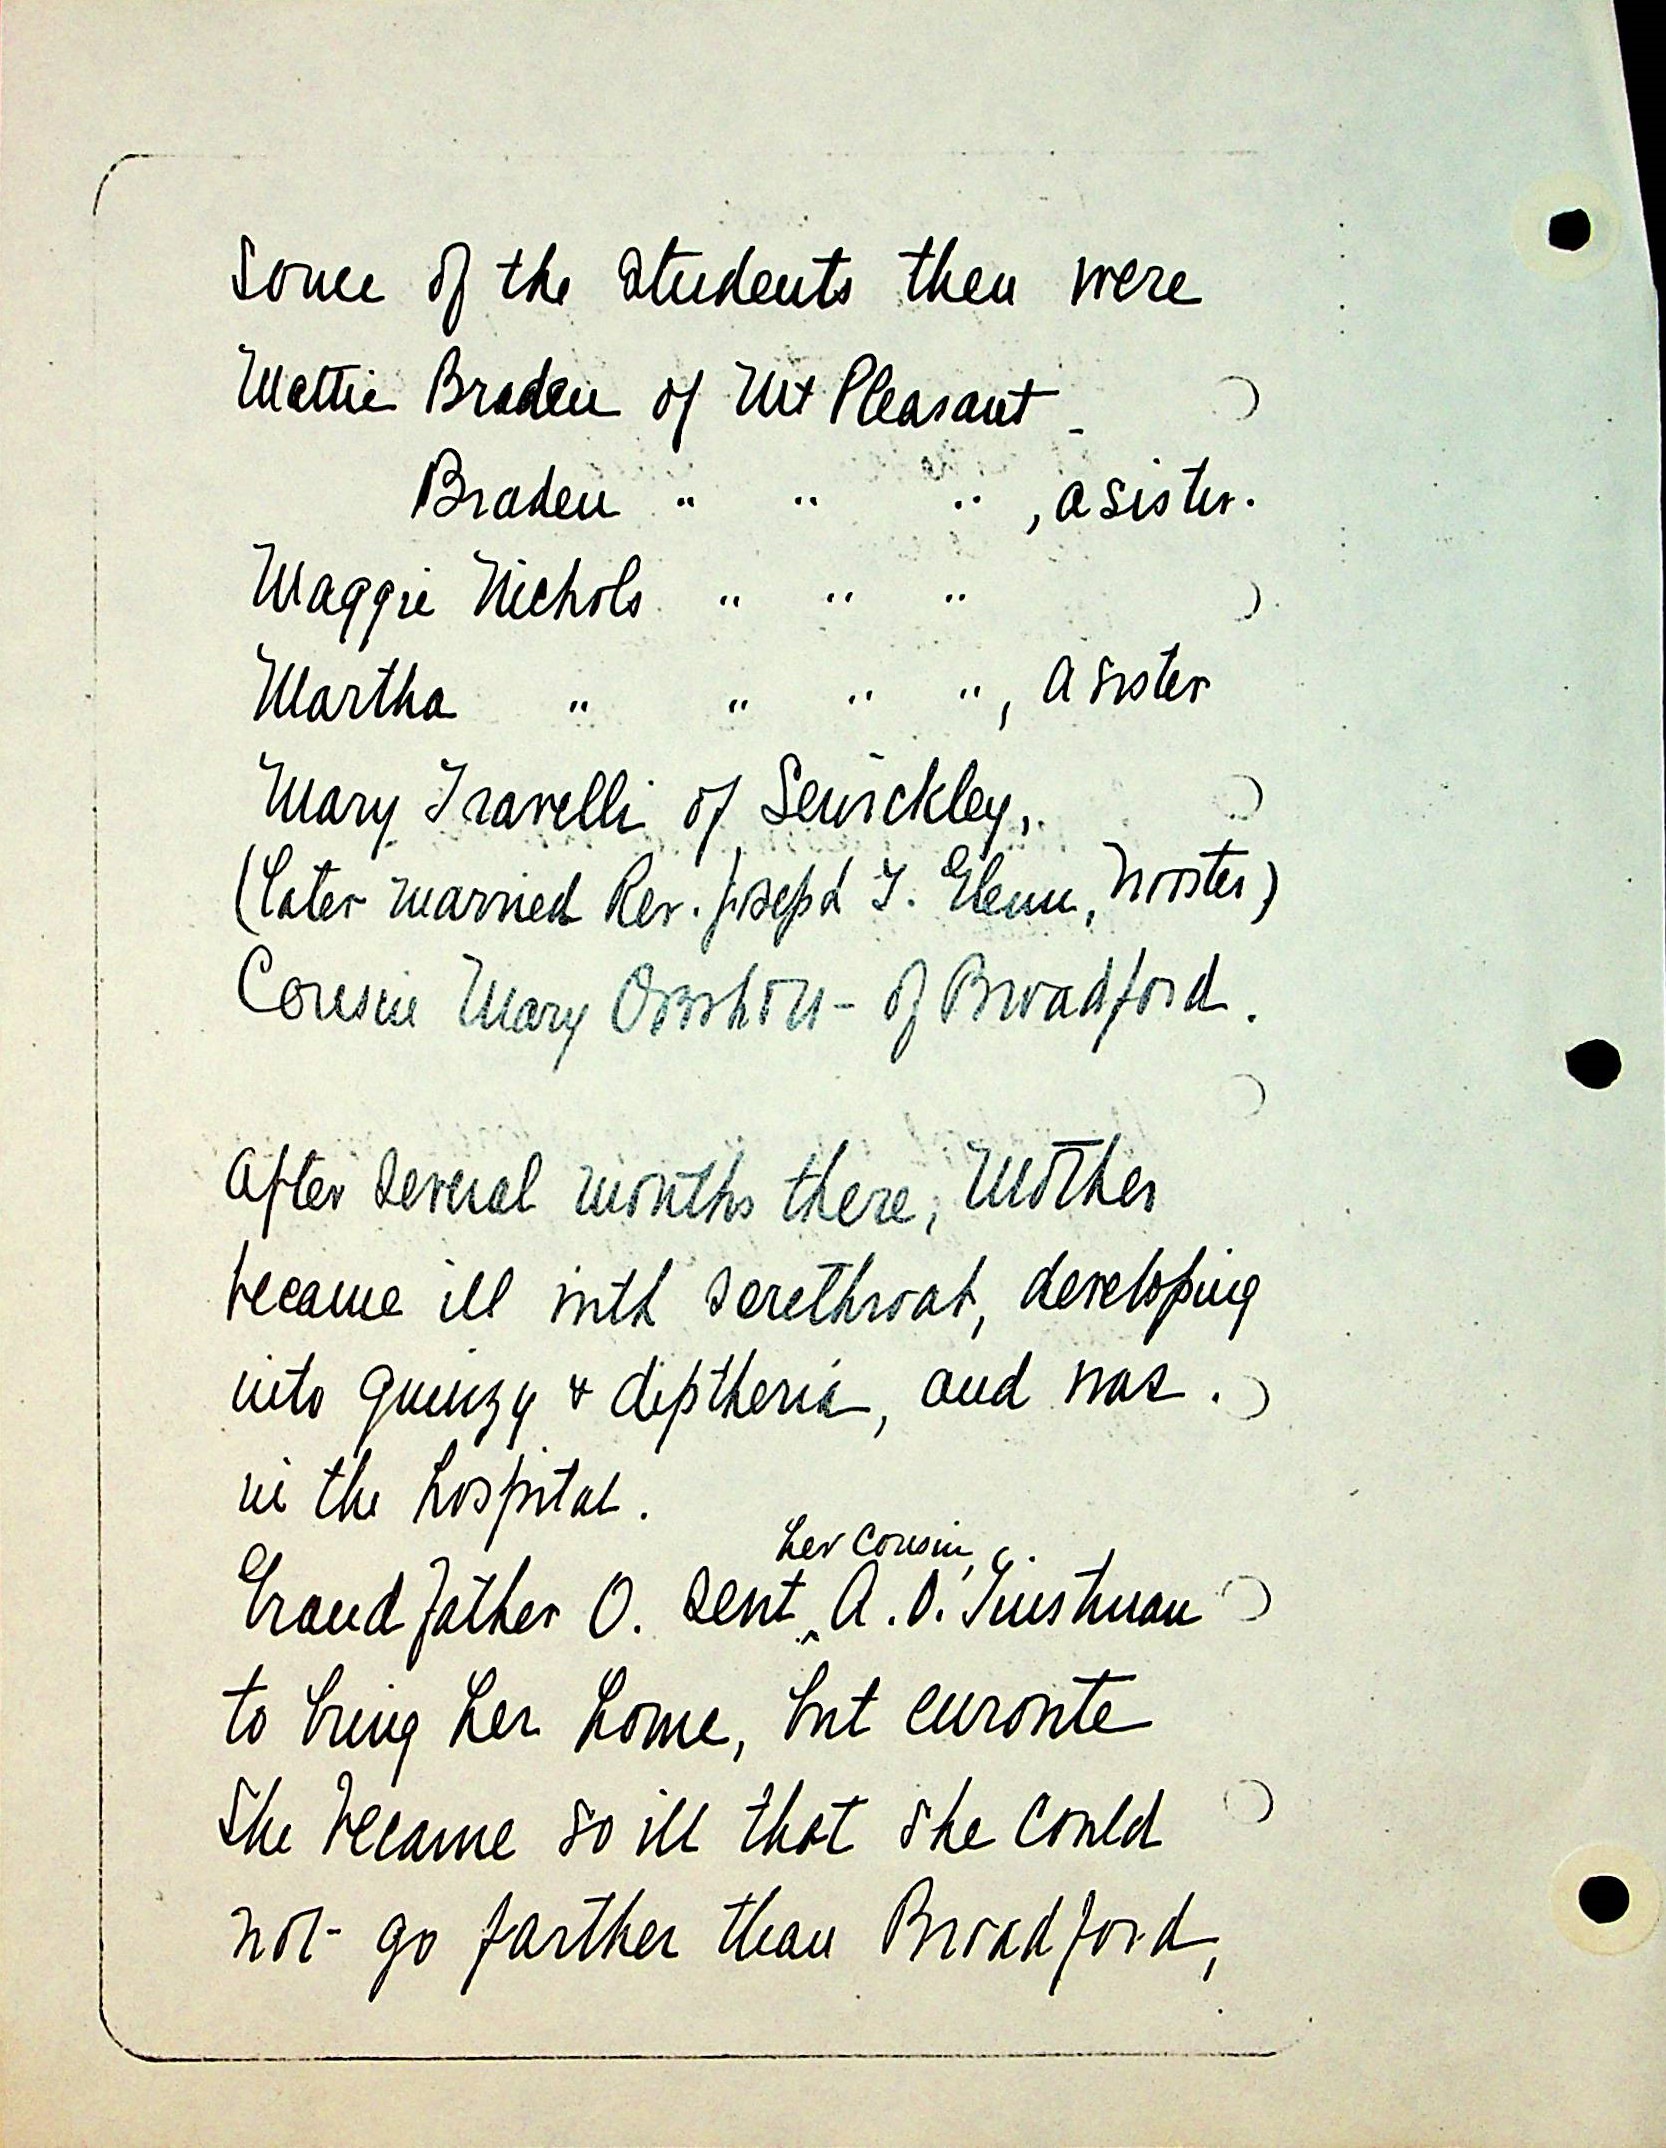 Some of the Students then were
Mattie Braden of Mt Pleasant
Braden " " " , a sister.
Maggie Nichols " " "
Martha " " " " , a sister
Mary Travelli of Sewickley,
(later married Rev. Joseph T. Glenn, Wooster)
Cousin Mary Overholt - of Broadford.
After several months there, Mother
became ill with sorethroat, developing
into quinzy & diptheria, and was
in the hospital.
her cousin,
Grandfather O. sent ^ A. O. Tinstman
to bring her home, but enroute
she became so ill that she could
not go farther than Broadford,